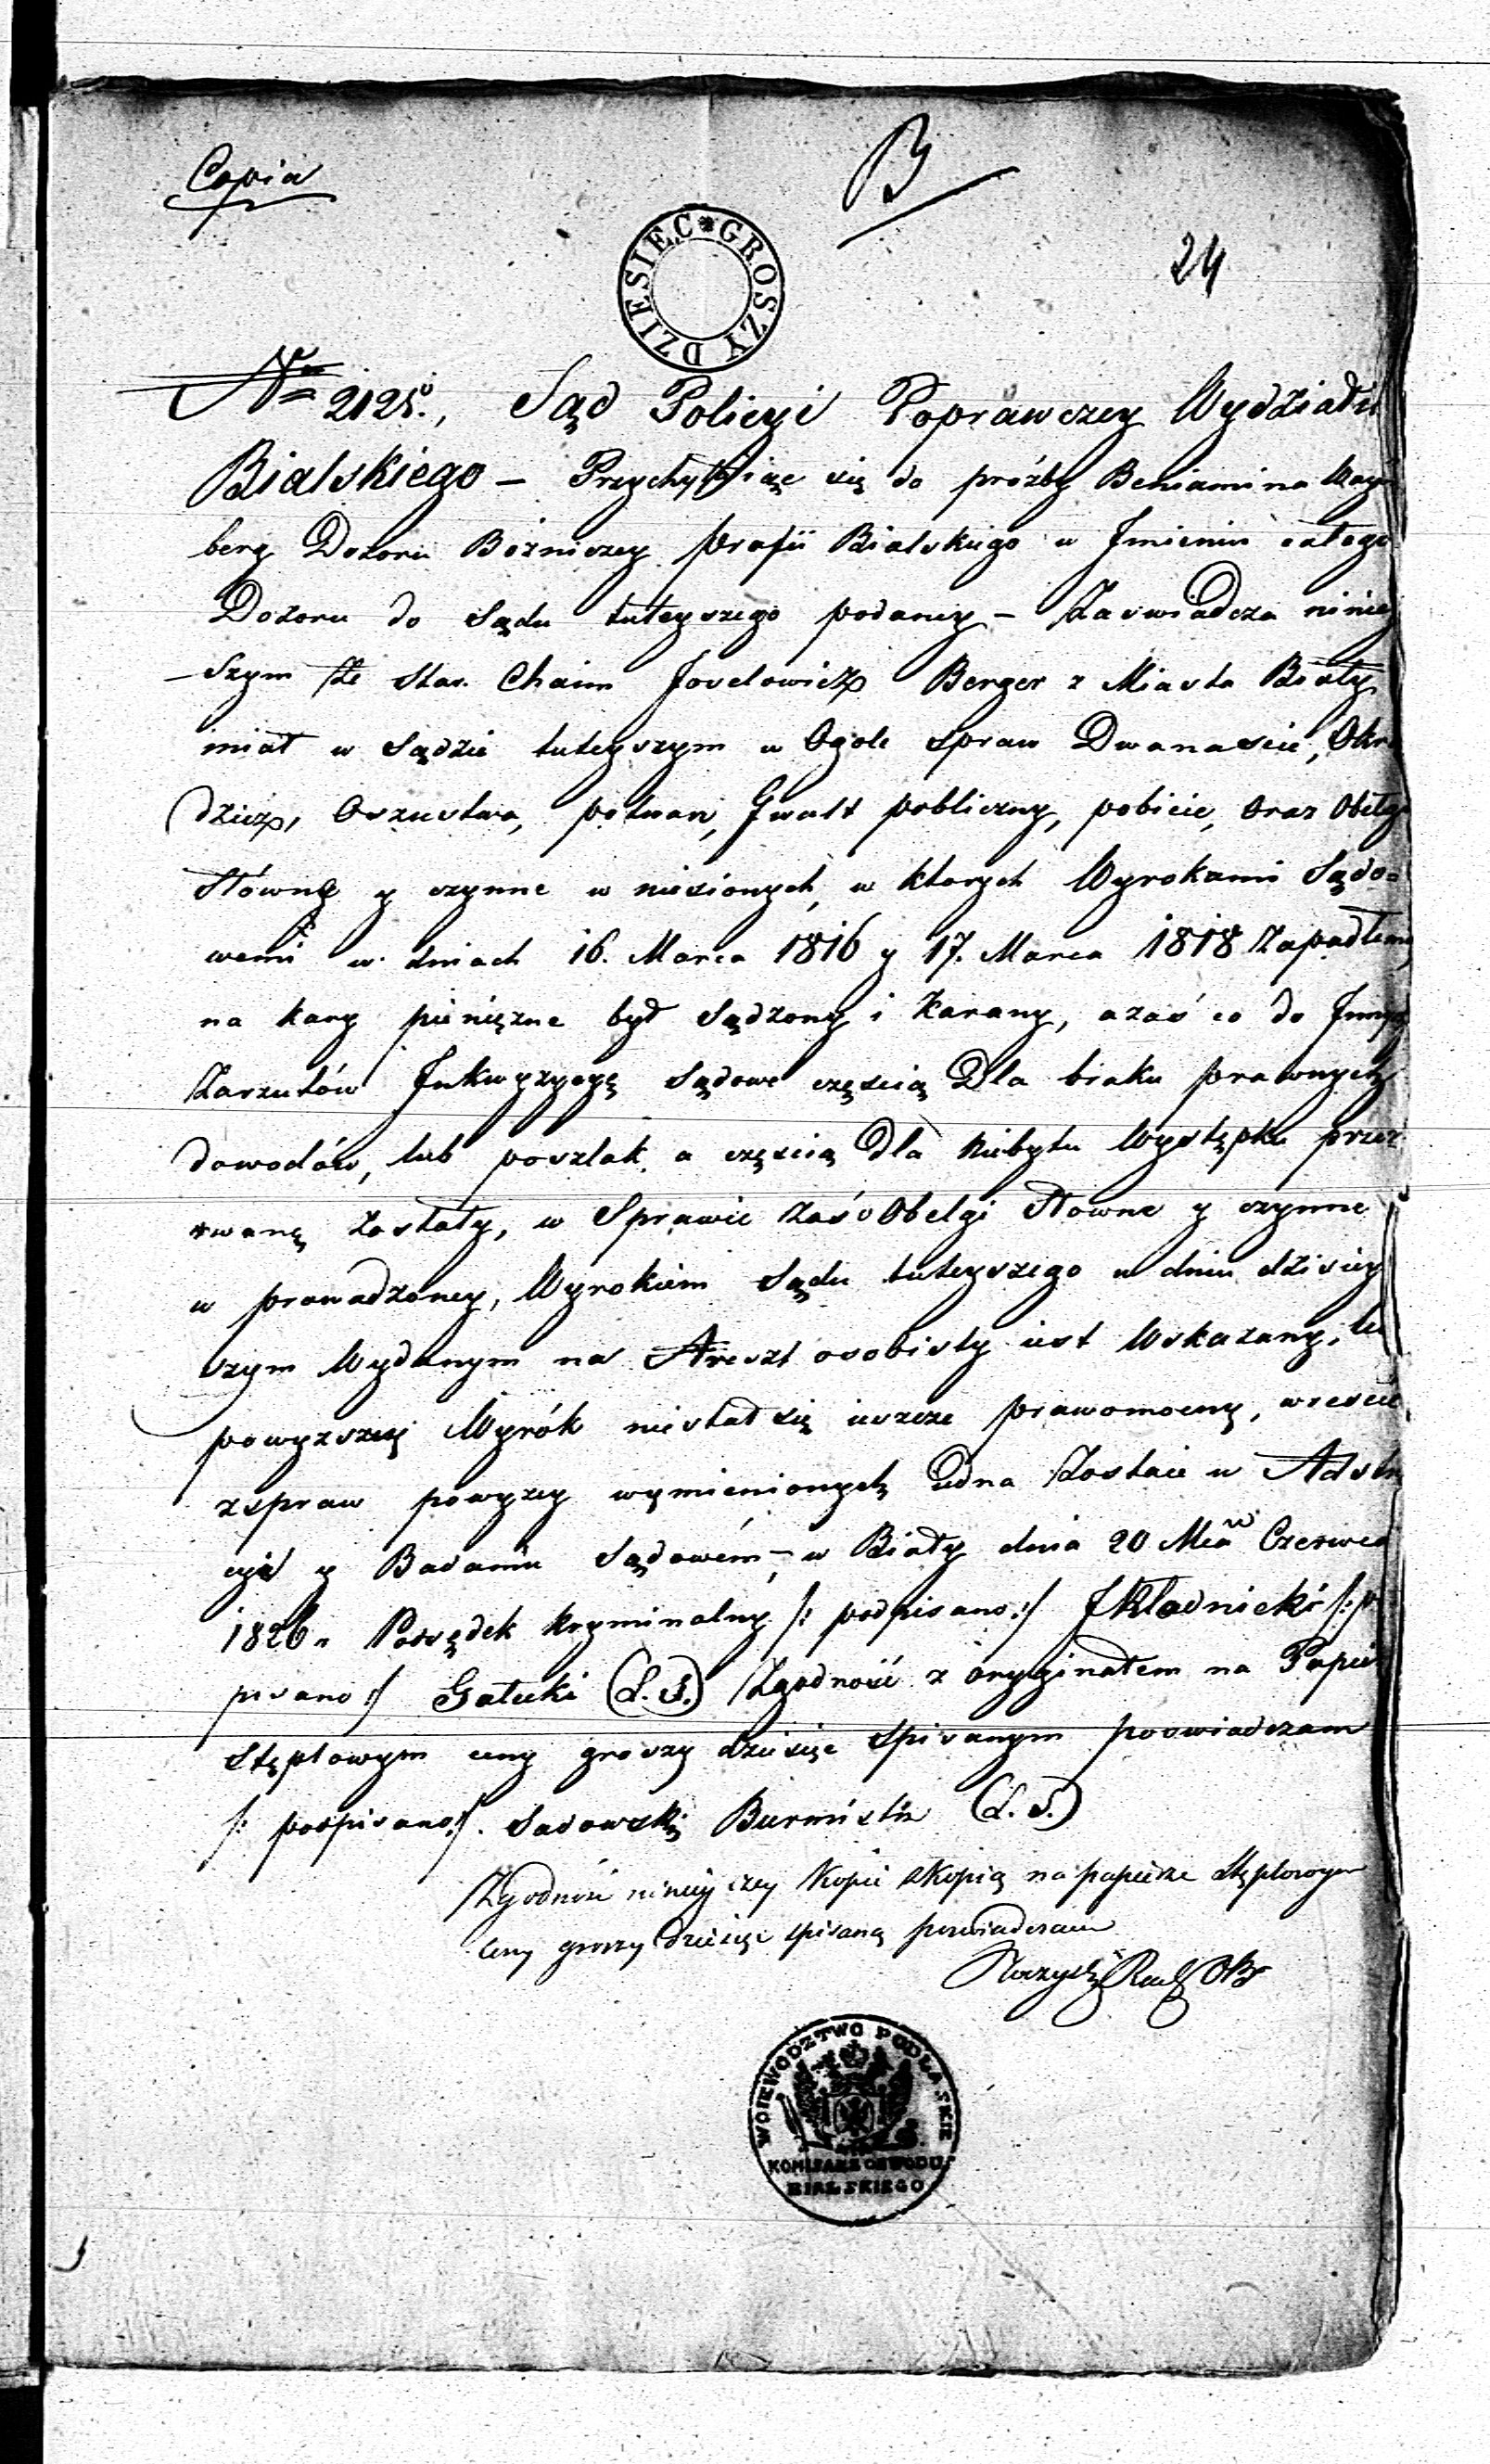 Copia
B
24
DZIESIEC * GROSZY
Nro 2125., Sąd Policyi Poprawczey Wydziału
Bialskiego – Przychylaiąc się do próżby Beniamina
berg Dozoru Bożniczey Prafii Bialskiego w Jmieniu całego
Dozoru do Sądu tuteyszego podaney – Zaswiadcza niniey
szym że Star. Chaim Joselowicz Berger z Miasta Biały
miał w Sądzie tuteyszym w Ogole spraw Dwanascie, Okra
dzież, Oszustwa, potwarz, Gwałt publiczny, pobicie, oraz Obelgi
Słowne y czynne w niesionych, w ktorych Wyrokami Sądo=
wemi w dniach 16. Marca 1816 y 17. Marca 1818 Zapadłemi
na kary pieniężne był Sądzony i Karany, azaś co do Jnnych
Zarzutów Jnkwyzycyę Sądowe częscią Dla braku prawnych
dowodów, lub poszlak, a częscią Dla Niebytu Występku prze
rwanę Zostały, w Sprawie Zaś o Obelgi Słowne y czynne
w prowadzoney, Wyrokiem Sądu tuteyszego w dniu dzisiey
szym Wydanym na Areszt osobisty iest Wskazany, le
powyzszy Wyrók niestał się ieszcze prawomocny, wrescie
zspraw powyzey wymienionych Jedna Zostaie w
cyi y Badaniu Sądowém, – w Biały dnia 20 Mca Czerwca
1826 Podsędek Kryminalny /: podpisano :/ J Kładnicki /: pod
pisano :/ Gałecki (L. S.) Zgodność z oryginałem na Papie
stęplowym ceny groszy dziesięc Spisanym poswiadczam
/: podpisano :/. Sadowski Burmistrz (L. S.)
Zgodność ninieyszey Kopii z Kopią na papierze Stęplowym
Ceny groszy dziesięc spisaną poswiadczam
WOIEWODZTWO PODLASKIE
KOMISARZ OBWODU
BIALSKIEGO